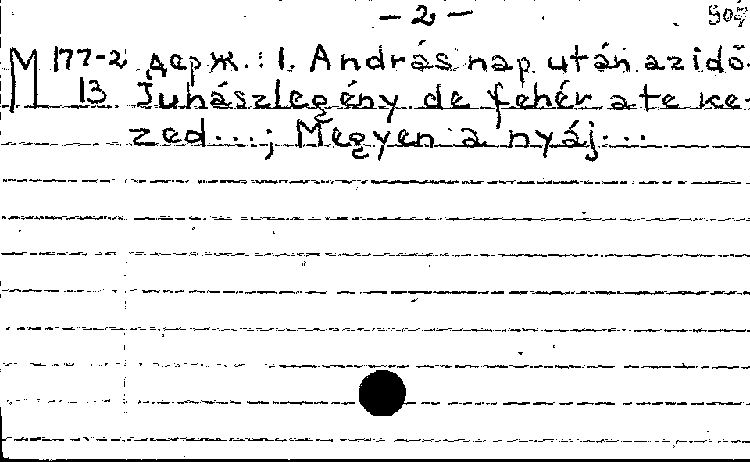 - 2 -
M 177-2 держ.: 1. András nap után az idő.
13 Juhászlegény de fehér a te ke-
zed...; Megyen a nyáj...